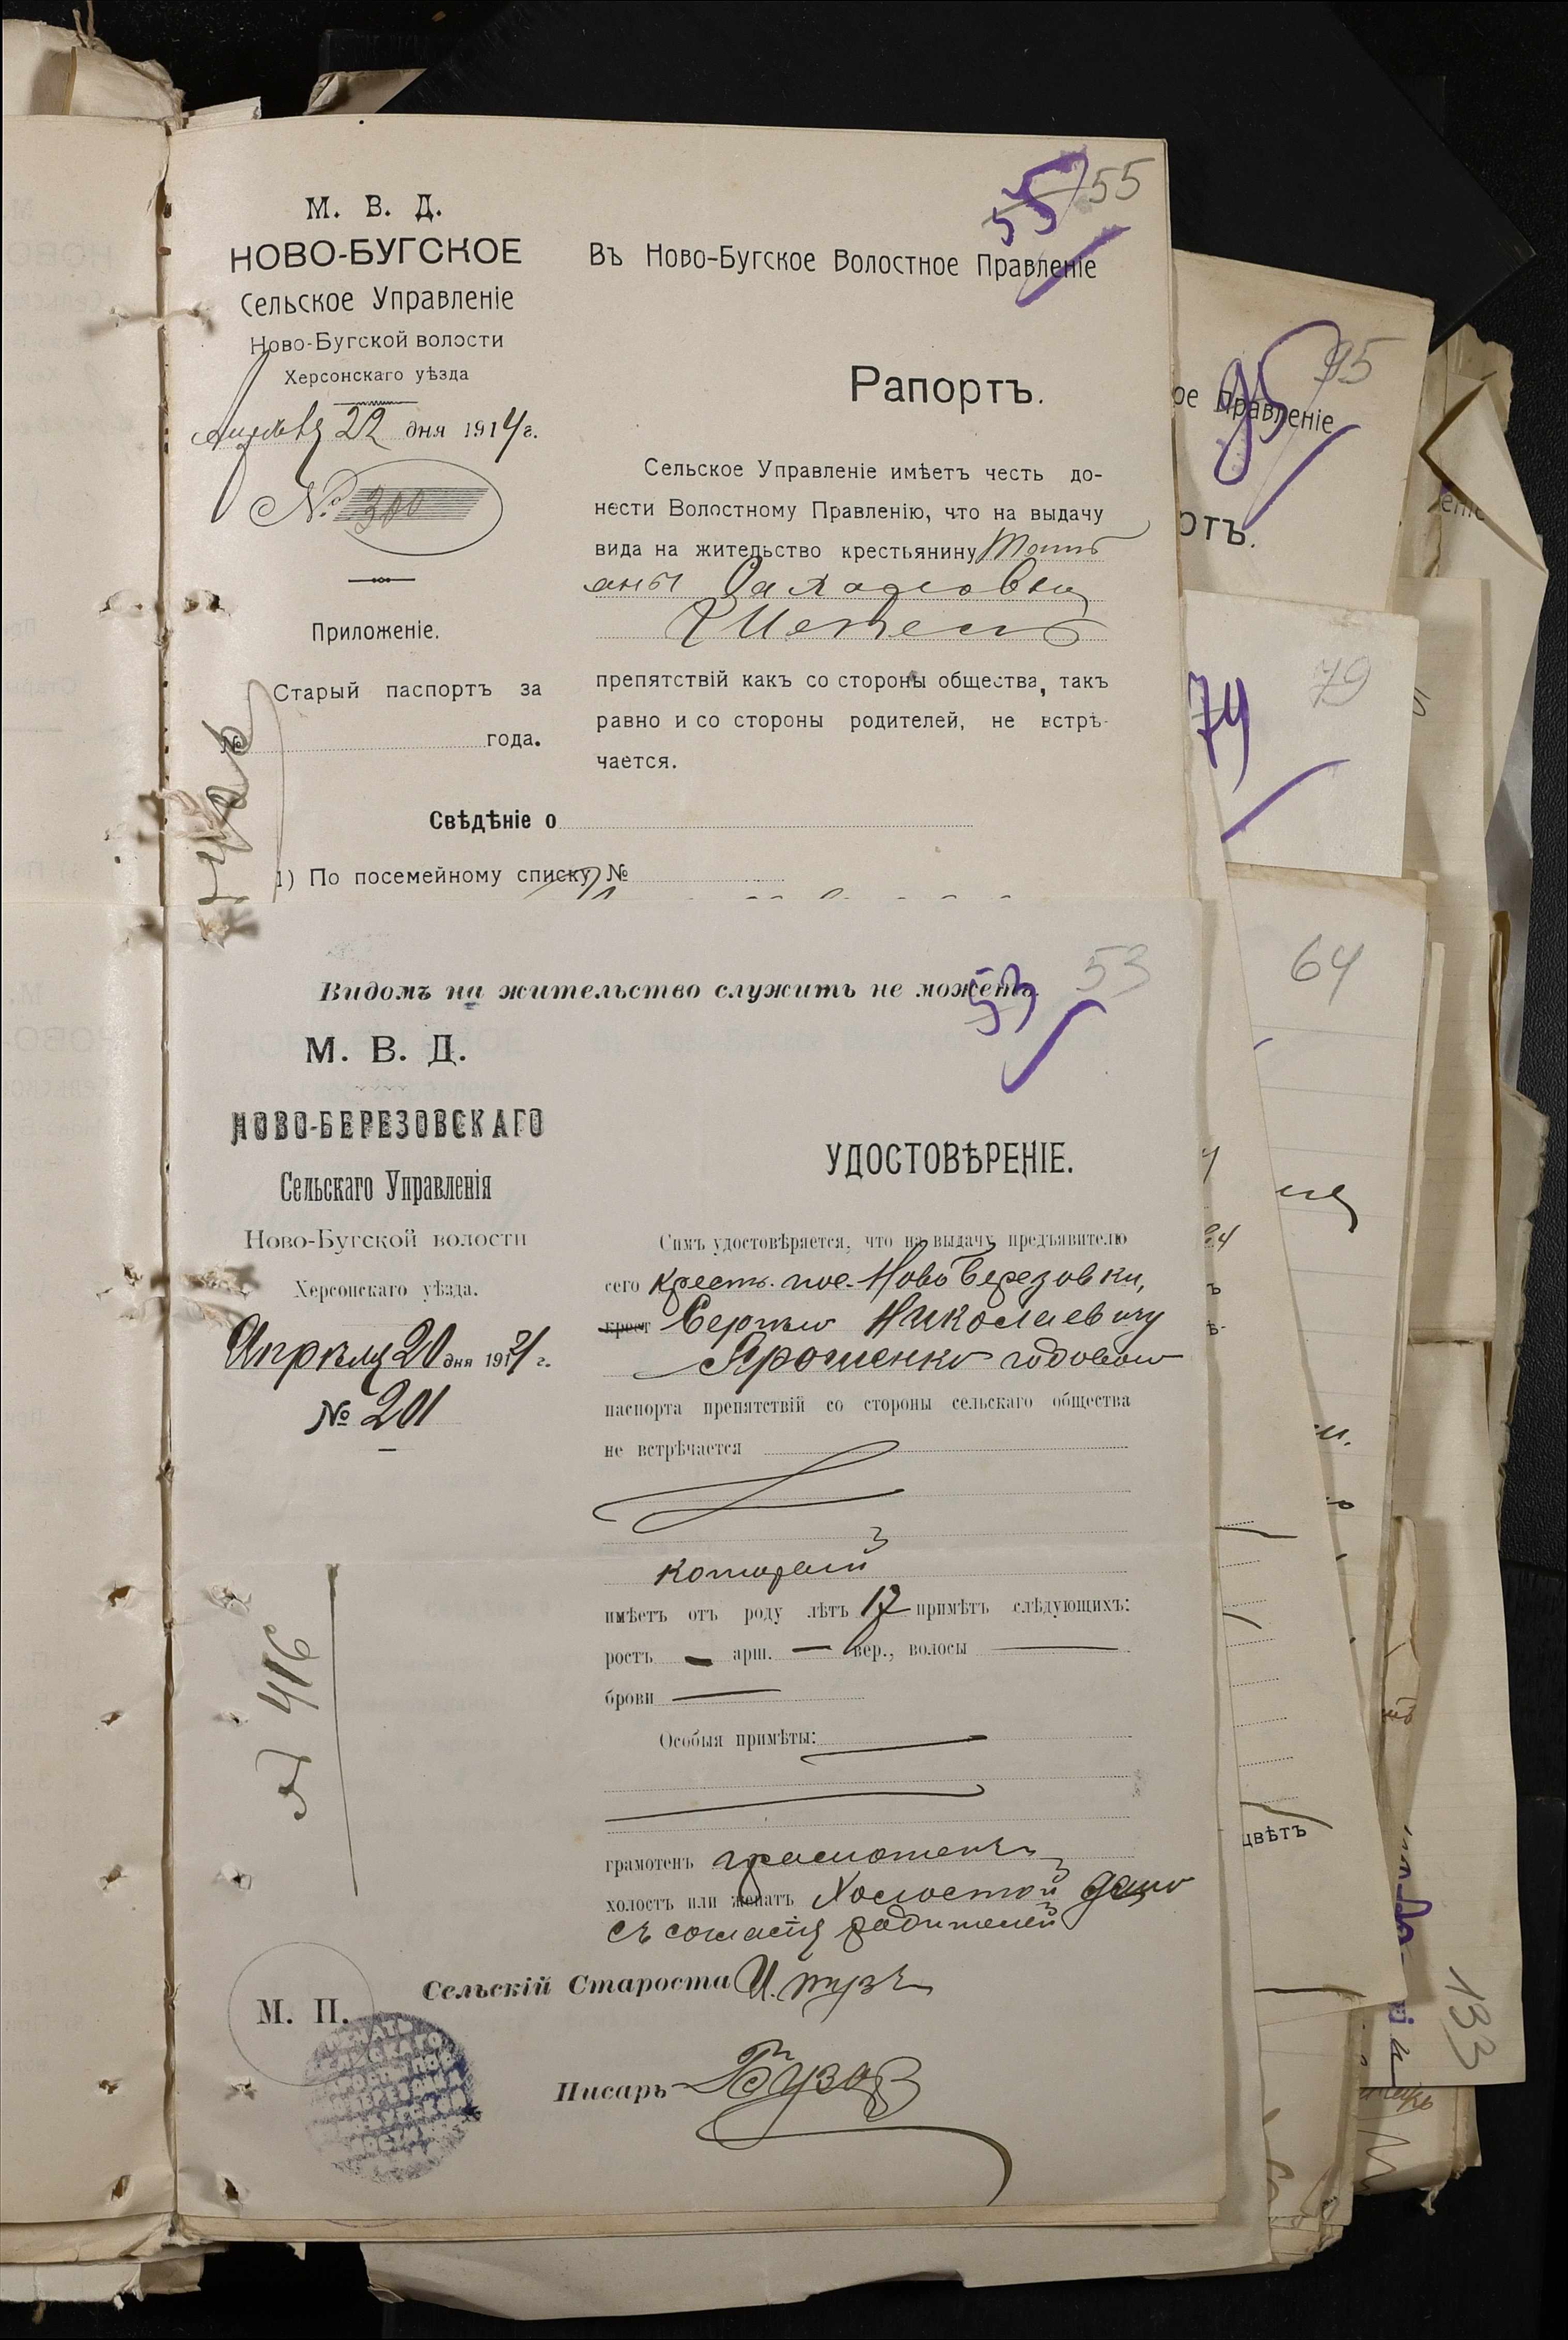 55 55
М. В. Д.
НОВО-БУГСКОЕ
Сельское Управленіе
Ново-Бугской волости
Херсонскаго уѣзда
Апрѣля 22 дня 1914 г.
№ 300
Приложеніе.
Старый паспортъ за
№ года.
Въ Ново-Бугское Волостное Правленіе
Рапортъ.
Сельское Управленіе имѣетъ честь до-
нести Волостному Правленію, что на выдачу
вида на жительство крестьянину Тать
аны
препятствій какъ со стороны общества, такъ
равно и со стороны родителей, не встрѣ-
чается.
Свѣдѣніе о
1) По посемейному списку №
53 53
Видомъ на жительство служить не можетъ.
М. В. Д.
НОВО-БЕРЕЗОВСКАГО
Сельскаго Управленія
Ново-Бугской волости
Херсонскаго уѣзда.
Апрѣля 20 дня 1914 г.
№ 201
416
УДОСТОВѢРЕНІЕ.
Симъ удостовѣряется, что на выдачу предъявителю
сего крестъ. пос. Ново Березовки,
крест Сергѣю Николаевичу
Ярошенко годового
паспорта препятствій со стороны сельскаго общества
не встрѣчается
который
имѣетъ отъ роду лѣтъ 17 примѣтъ слѣдующихъ:
ростъ арш. вер., волосы
брови
Особыя примѣты:
грамотенъ грамотенъ
холостъ или женатъ Холостой дано
съ согласія родителей
Сельскій Староста
М. П.
Писарь Бузов
95 95
ое Правленіе
ртъ.
79 79
64
цвѣтъ
133